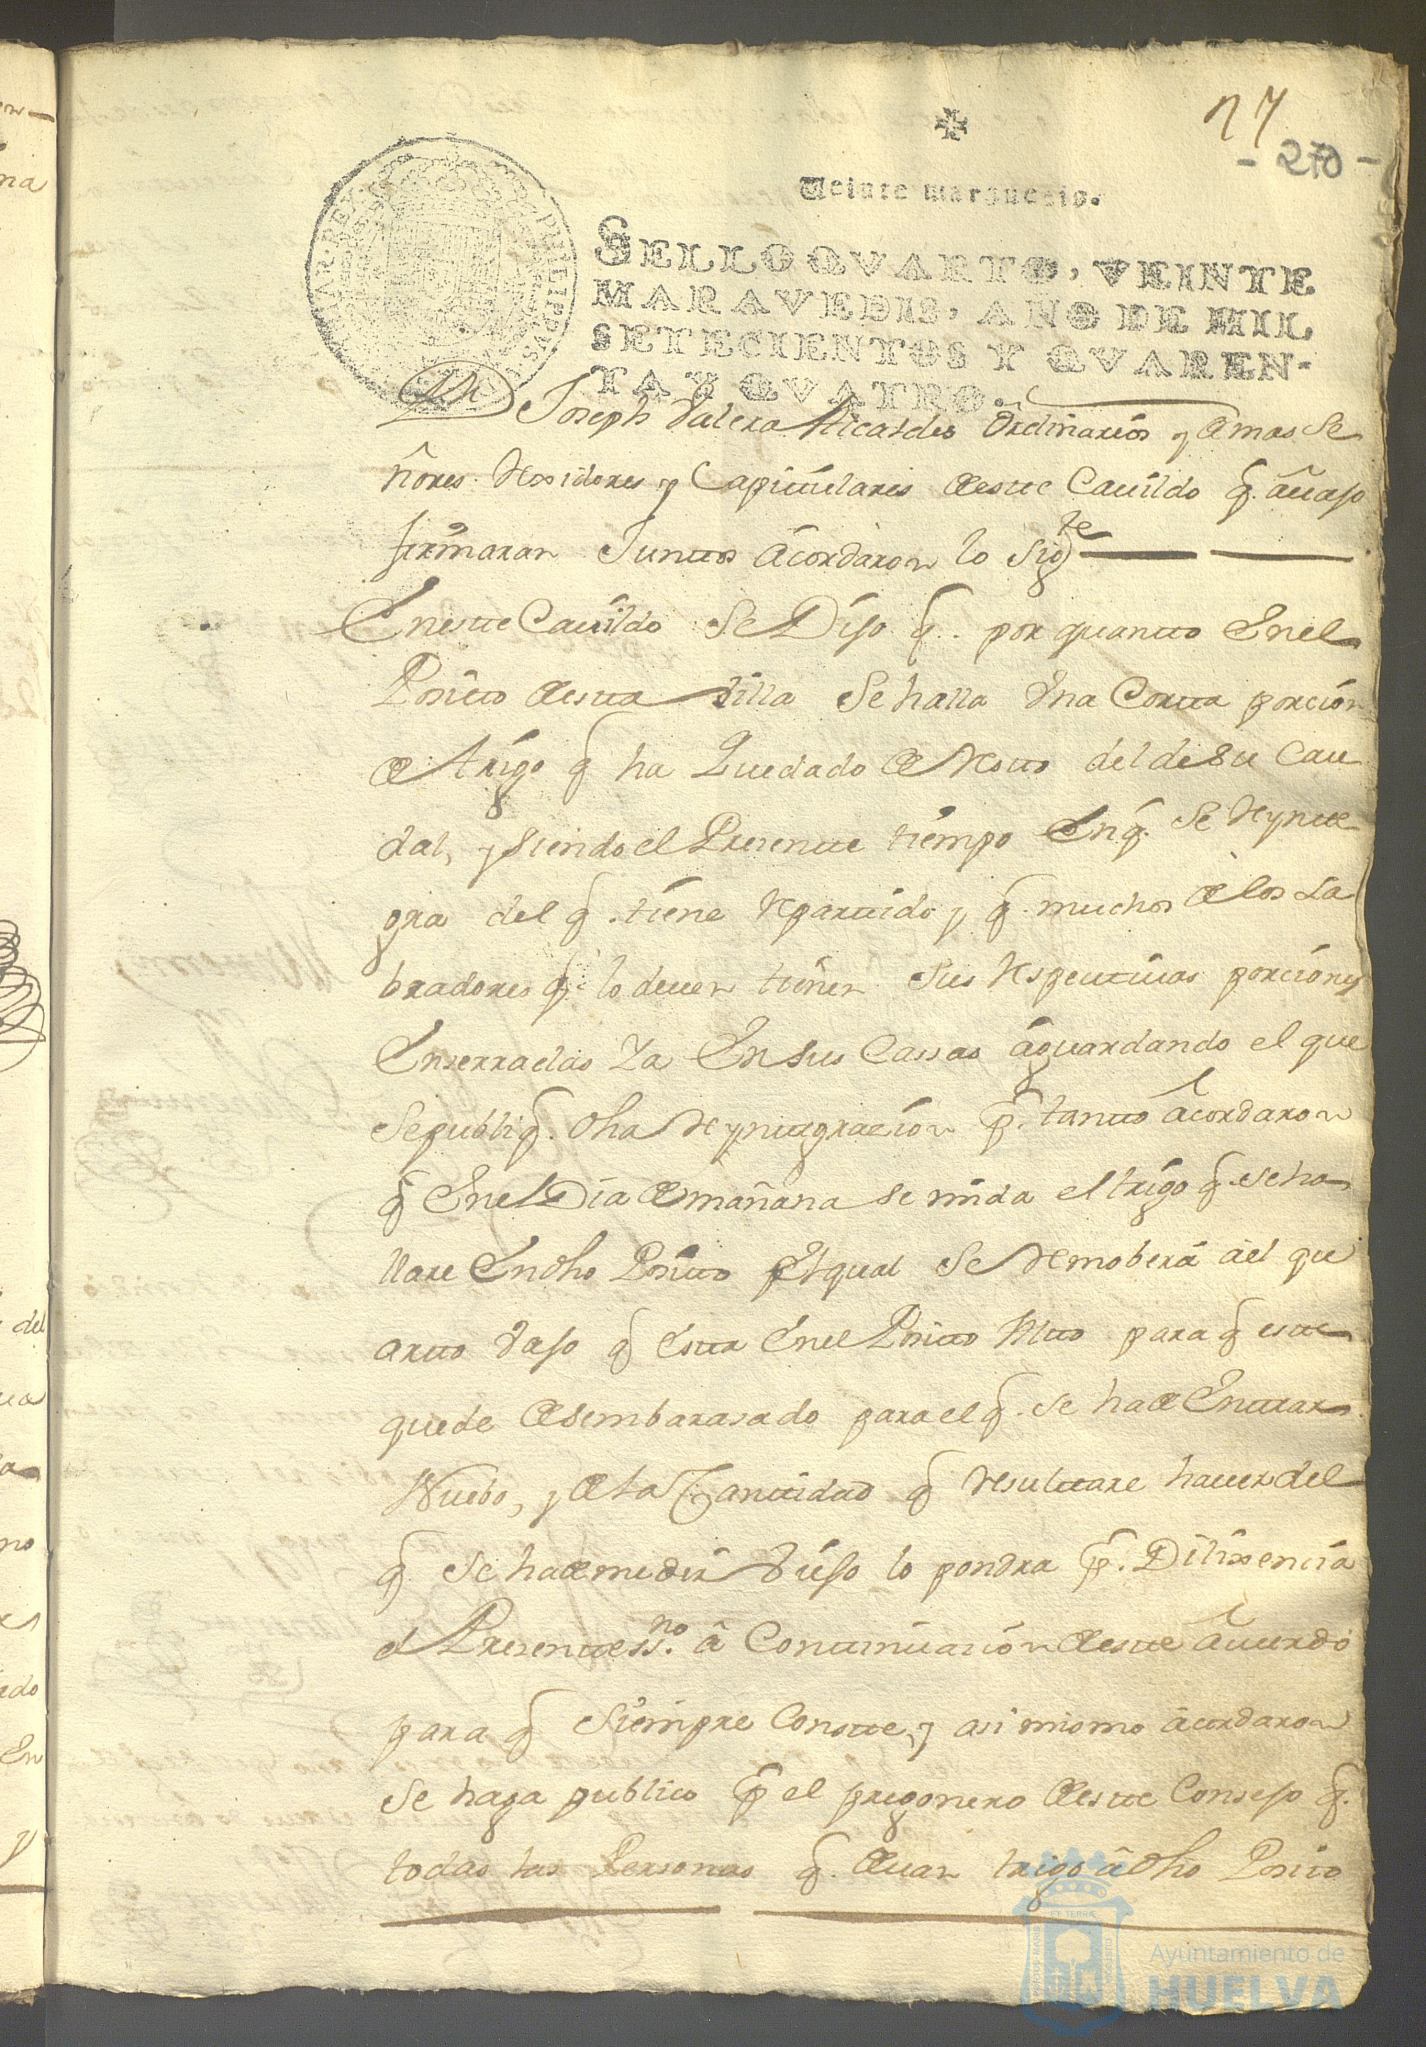 27
- 270 -
Veinte marauedis.
SELLO QVARTO, VEINTE
MARAVEDIS, AÑO DE MIL
SETECIENTOS Y QVAREN-
TA Y QVATRO.
Dn Joseph Valera Alcaldes Ordinarios y demas Se
ñores Rexidores y Capitulares deste Cauildo q. auajo
firmaran Juntos acordaron lo Sigte
En este Cauildo Se Dijo q. por quanto En el
Posito desta Villa Se halla Vna Corta porcion
de trigo q ha Quedado de Resto del de su Cau
dal, y siendo el Presente tiempo En q. Se Reynte
gra del q. tiene Repartido y q. muchos de los La
bradores q. lo deuen tienen Sus Respectiuas porciones
Enserradas Ya En sus Cassas aguardando el que
Se publiq. dha Reyntegracion p. tanto acordaron
q En el Dia de mañana se mida el trigo q. se ha
llare En dho Posito El qual Se Remoberá al qu
arto Vajo q Esta En el Posito Alto para q este
quede desembarasado para el q. Se ha de Entrar
Nuebo, y de la Cantidad q Resultare hauer del
q. Se ha de medir Viejo lo pondra p. Dilixencia
el Presente ssno. a Continuacion deste acuerdo
para q Siempre Conste, y asi mismo acordaron
Se haga publico p el pregonero deste Consejo q.
todas las Personas q. deuan trigo a dho Posito
Ayuntamiento de
HUELVA